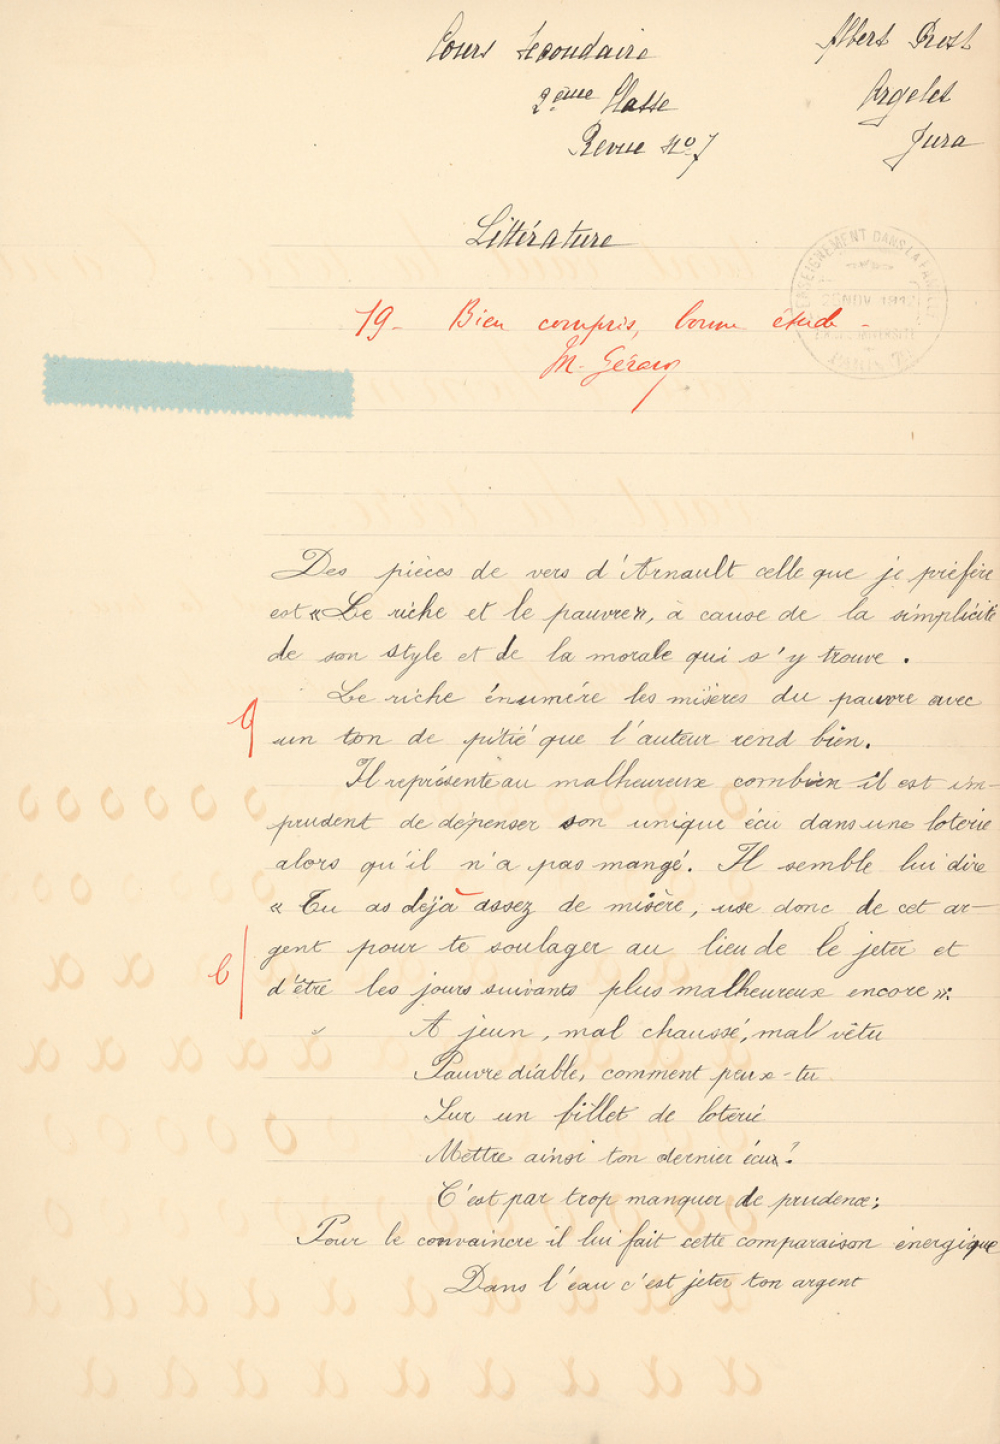 Cours Secondaire
2ème Classe
Revue No 7
Albert Prost
Argelet
Jura
Littérature
ENSEIGNEMENT DANS LA FAMILLE
NOV 191
PARIS
19 - Bien compris, bonne étude -
M. Gérard
Des pièces de vers d'Arnault celle que je préfère
est « Le riche et le pauvre », à cause de la simplicité
de son style et de la morale qui s'y trouve.
Le riche énumére les misères du pauvre avec
un ton de pitié que l'auteur rend bien.
Il représente au malheureux combien il est im-
prudent de dépenser son unique écu dans une loterie
alors qu'il n'a pas mangé. Il semble lui dire
« Tu as déjà assez de misère, use donc de cet ar-
gent pour te soulager au lieu de le jeter et
d'être les jours suivants plus malheureux encore ».
A jeun, mal chaussé, mal vêtu
Pauvre diable, comment peux-tu
Sur un billet de loterie
Mettre ainsi ton dernier écu ?
C'est par trop manquer de prudence ;
Pour le convaincre il lui fait cette comparaison énergique
Dans l'eau c'est jeter ton argent